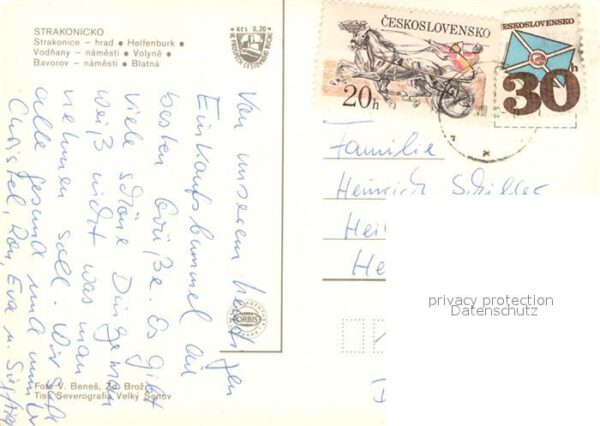 STRAKONICKO
Strakonice – hrad • Helfenburk •
Vodňany – náměstí • Volyně •
Bavorov – náměstí • Blatná
Kčs 0,20
ČESKOSLOVENSKO
20h
ČESKOSLOVENSKO
30h
Von unserem heutigen
Einkaufsbummel die
besten Grüße. Es gibt
viele schöne Dinge man
weiß nicht was man
nehmen soll. Wir sind
alle gesund und
Christel, Ron, Eva u.
Familie
Heinrich Schiller
Hei
He
ORBIS
privacy protection
Datenschutz
Foto V. Beneš, Zd. Brož
Tisk Severografia Velký Šenov